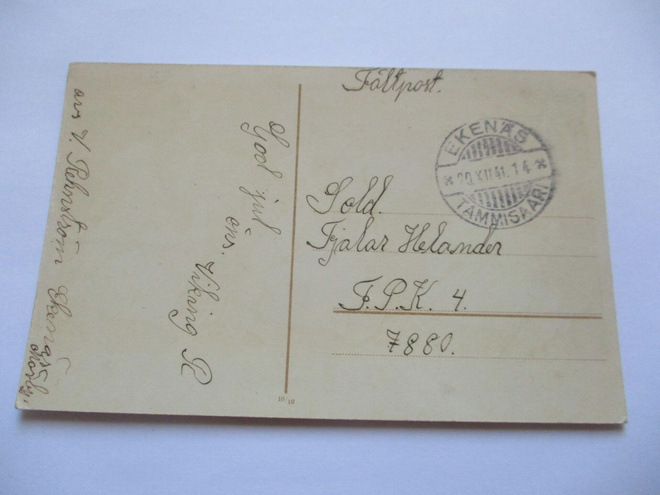 Fältpost.
EKENÄS
* 20.XII.41.14 *
TAMMISAARI
Sold.
Fjalar Helander
F.P.K. 4.
7880.
God jul
öns. Viking R
avs V. Rehnström Ekenäs
10/16